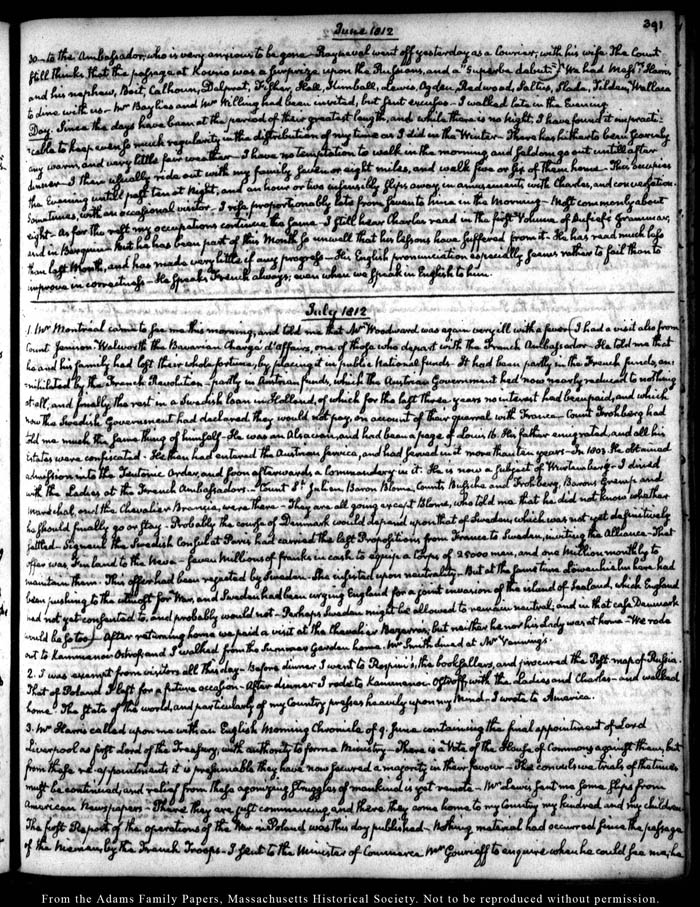 June 1812
391
30. to the Ambassador, who is very anxious to be gone. Rayneval went off yesterday as a Courier, with his wife. The Count
still thinks that the passage at Kovno was a surprize upon the Russians, and a "superbe debut". We had Mess.rs Harris
and his nephew, Beit, Calhoun, Fisher, Hall, Kimball, Lewis, Ogden, Redwood, Slade, Tilden, Wallace
to dine with us. Mr Baylies and Mr Willing had been invited, but sent excuses. I walked late in the Evening
Day. Since the days have been at the period of their greatest length, and while there is no Night, I have found it impracti-
cable to keep even so much regularity in the distribution of my time as I did in the Winter. There has hitherto been scarcely
any warm, and very little fair weather. I have no temptation to walk in the morning and seldom go out untill after
dinner. I then usually ride out with my family seven or eight miles, and walk five or six of them home. This occupies
the Evening untill past ten at Night, and an hour or two insensibly slips away in amusements with Charles, and conversation.
Sometimes, with an occasional visitor. I rise proportionably late from seven to nine in the Morning. Most commonly about
eight. As for the rest my occupations continue the same. I still hear Charles read in the first Volume of Grammar,
and in Berquin. But he has been part of this Month so unwell that his lessons have suffered from it. He has read much less
than last Month, and has made very little if any progress. His English pronunciation especially seems rather to fail than to
improve in correctness. He speaks French always; even when we speak in English to him.
July 1812
1. Mr Montréal came to see me this morning, and told me that Mr Woodward was again very ill with a fever. I had a visit also from
Count Jennison Walworth the Bavarian Chargé d'affaires, one of those who depart with the French Ambassador. He told me that
he and his family had lost their whole fortune, by placing it in public National funds. It had been partly in the French funds, an-
nihilated by the French Revolution. partly in Austrian funds, which the Austrian Government had now nearly reduced to nothing
at all, and finally the rest in a Swedish loan in Holland, of which for the last three years no interest had been paid, and which
now the Swedish Government had declared they would not pay, on account of their quarrel with France. Count Frohberg had
told me much the same thing of himself. He was an Alsacian, and had been a page of Louis 16. His father emigrated, and all his
estates were confiscated. He then had entered the Austrian service, and had served in it more than ten years. In 1803 he obtained
admission into the Teutonic Order, and soon afterwards a Commandery in it. He is now a subject of Wirtemberg. I dined
with the Ladies at the French Ambassador's. Count St Julien, Baron Blome, Counts Bussche and Frohberg, Barons and
Marechal, and the Chevalier Brancia, were there. They are all going except Blome, who told me that he did not know whether
he should finally go or stay. Probably the course of Denmark would depend upon that of Sweden, which was not yet definitively
settled. Signeul the Swedish Consul at Paris had carried the last Propositions from France to Sweden, inviting the Alliance. That
offer was, Finland to the Neva. Seven Millions of franks in cash to equip a Corps of 25000 men, and one Million monthly to
maintain them. This offer had been rejected by Sweden. She insisted upon neutrality. But at the same time Löwenhielm here had
been pushing to the utmost for War, and Sweden had been urging England for a joint invasion of the island of Zealand, which England
had not yet consented to, and probably would not. Perhaps Sweden might be allowed to remain neutral; and in that case Denmark
would be so too. After returning home we paid a visit at the Chevalier Bezerra's, but neither he nor his lady was at home. We rode
out to Kammenoi Ostroff, and I walked from the Summer Garden home. Mr Smith dined at Mr Venning's
2. I was exempt from visitors all this day. Before dinner I went to Rospini's, the booksellers, and procured the Post map of Russia.
That of Poland I left for a future occasion. After dinner I rode to Kammenoi Ostroff, with the Ladies and Charles. and walked
home. The state of the world, and particularly of my Country presses heavily upon my Mind. I wrote to America.
3. Mr Harris called upon me with an English Morning Chronicle of 9. June containing the final appointment of Lord
Liverpool as first Lord of the Treasury, with authority to form a Ministry. There is a Vote of the House of Commons against them, but
from these re-appointments it is presumable they have now secured a majority in their favour. The convulsive trials of the times
must be continued, and relief from these agonizing struggles of mankind is yet remote. Mr Lewis sent me some slips from
American Newspapers. There they are just commencing and there they come home to my Country my kindred and my children.
The first Report of the operations of the War in Poland was this day published. Nothing material had occurred since the passage
of the Niemen, by the French Troops. I sent to the Minister of Commerce Mr Gourieff to enquire when he could see me; he
From the Adams Family Papers, Massachusetts Historical Society. Not to be reproduced without permission.